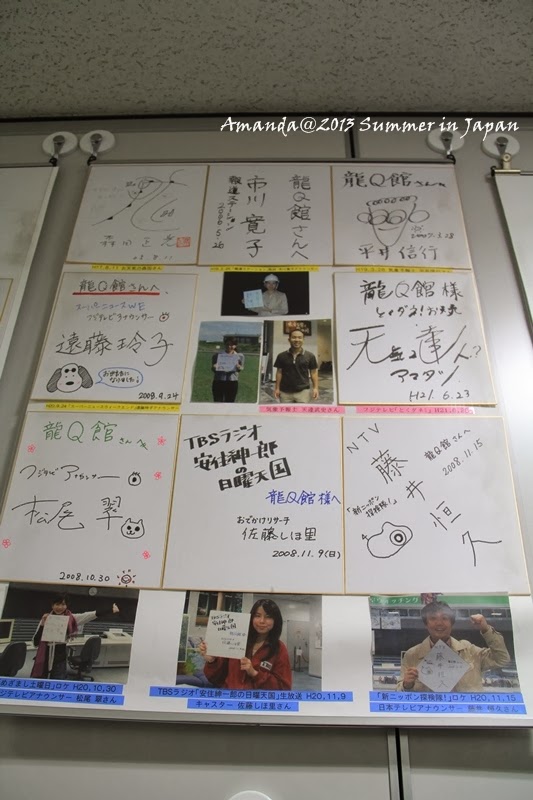 Amanda@2013 Summer in Japan
龍Q館さんへ
市川 寛子
報道ステーション
2006.5.26
龍Q館さんへ
2007.3.28
平井信行
龍Q館さんへ
スーパーニュースWE
フジテレビアナウンサー
遠藤玲子
お世話になりました!
2008.9.24
龍Q館 様
天気の達人?
アマタツ
H21.6.23
龍Q館さんへ
フジテレビアナウンサー
松尾 翠
2008.10.30
TBSラジオ
安住紳一郎
の
日曜天国
龍Q館様へ
おでかけリサーチ
佐藤しほ里
2008.11.9(日)
NTV
龍Q館さんへ
2008.11.15
「新ニッポン探検隊!」
藤井恒久
めざまし土曜日」ロケ H20.10.30
ジテレビアナウンサー 松尾 翠さん
TBSラジオ「安住紳一郎の日曜天国」生放送 H20.11.9
キャスター 佐藤しほ里さん
「新ニッポン探検隊!」ロケ H20.11.15
日本テレビアナウンサー 藤井 恒久さん